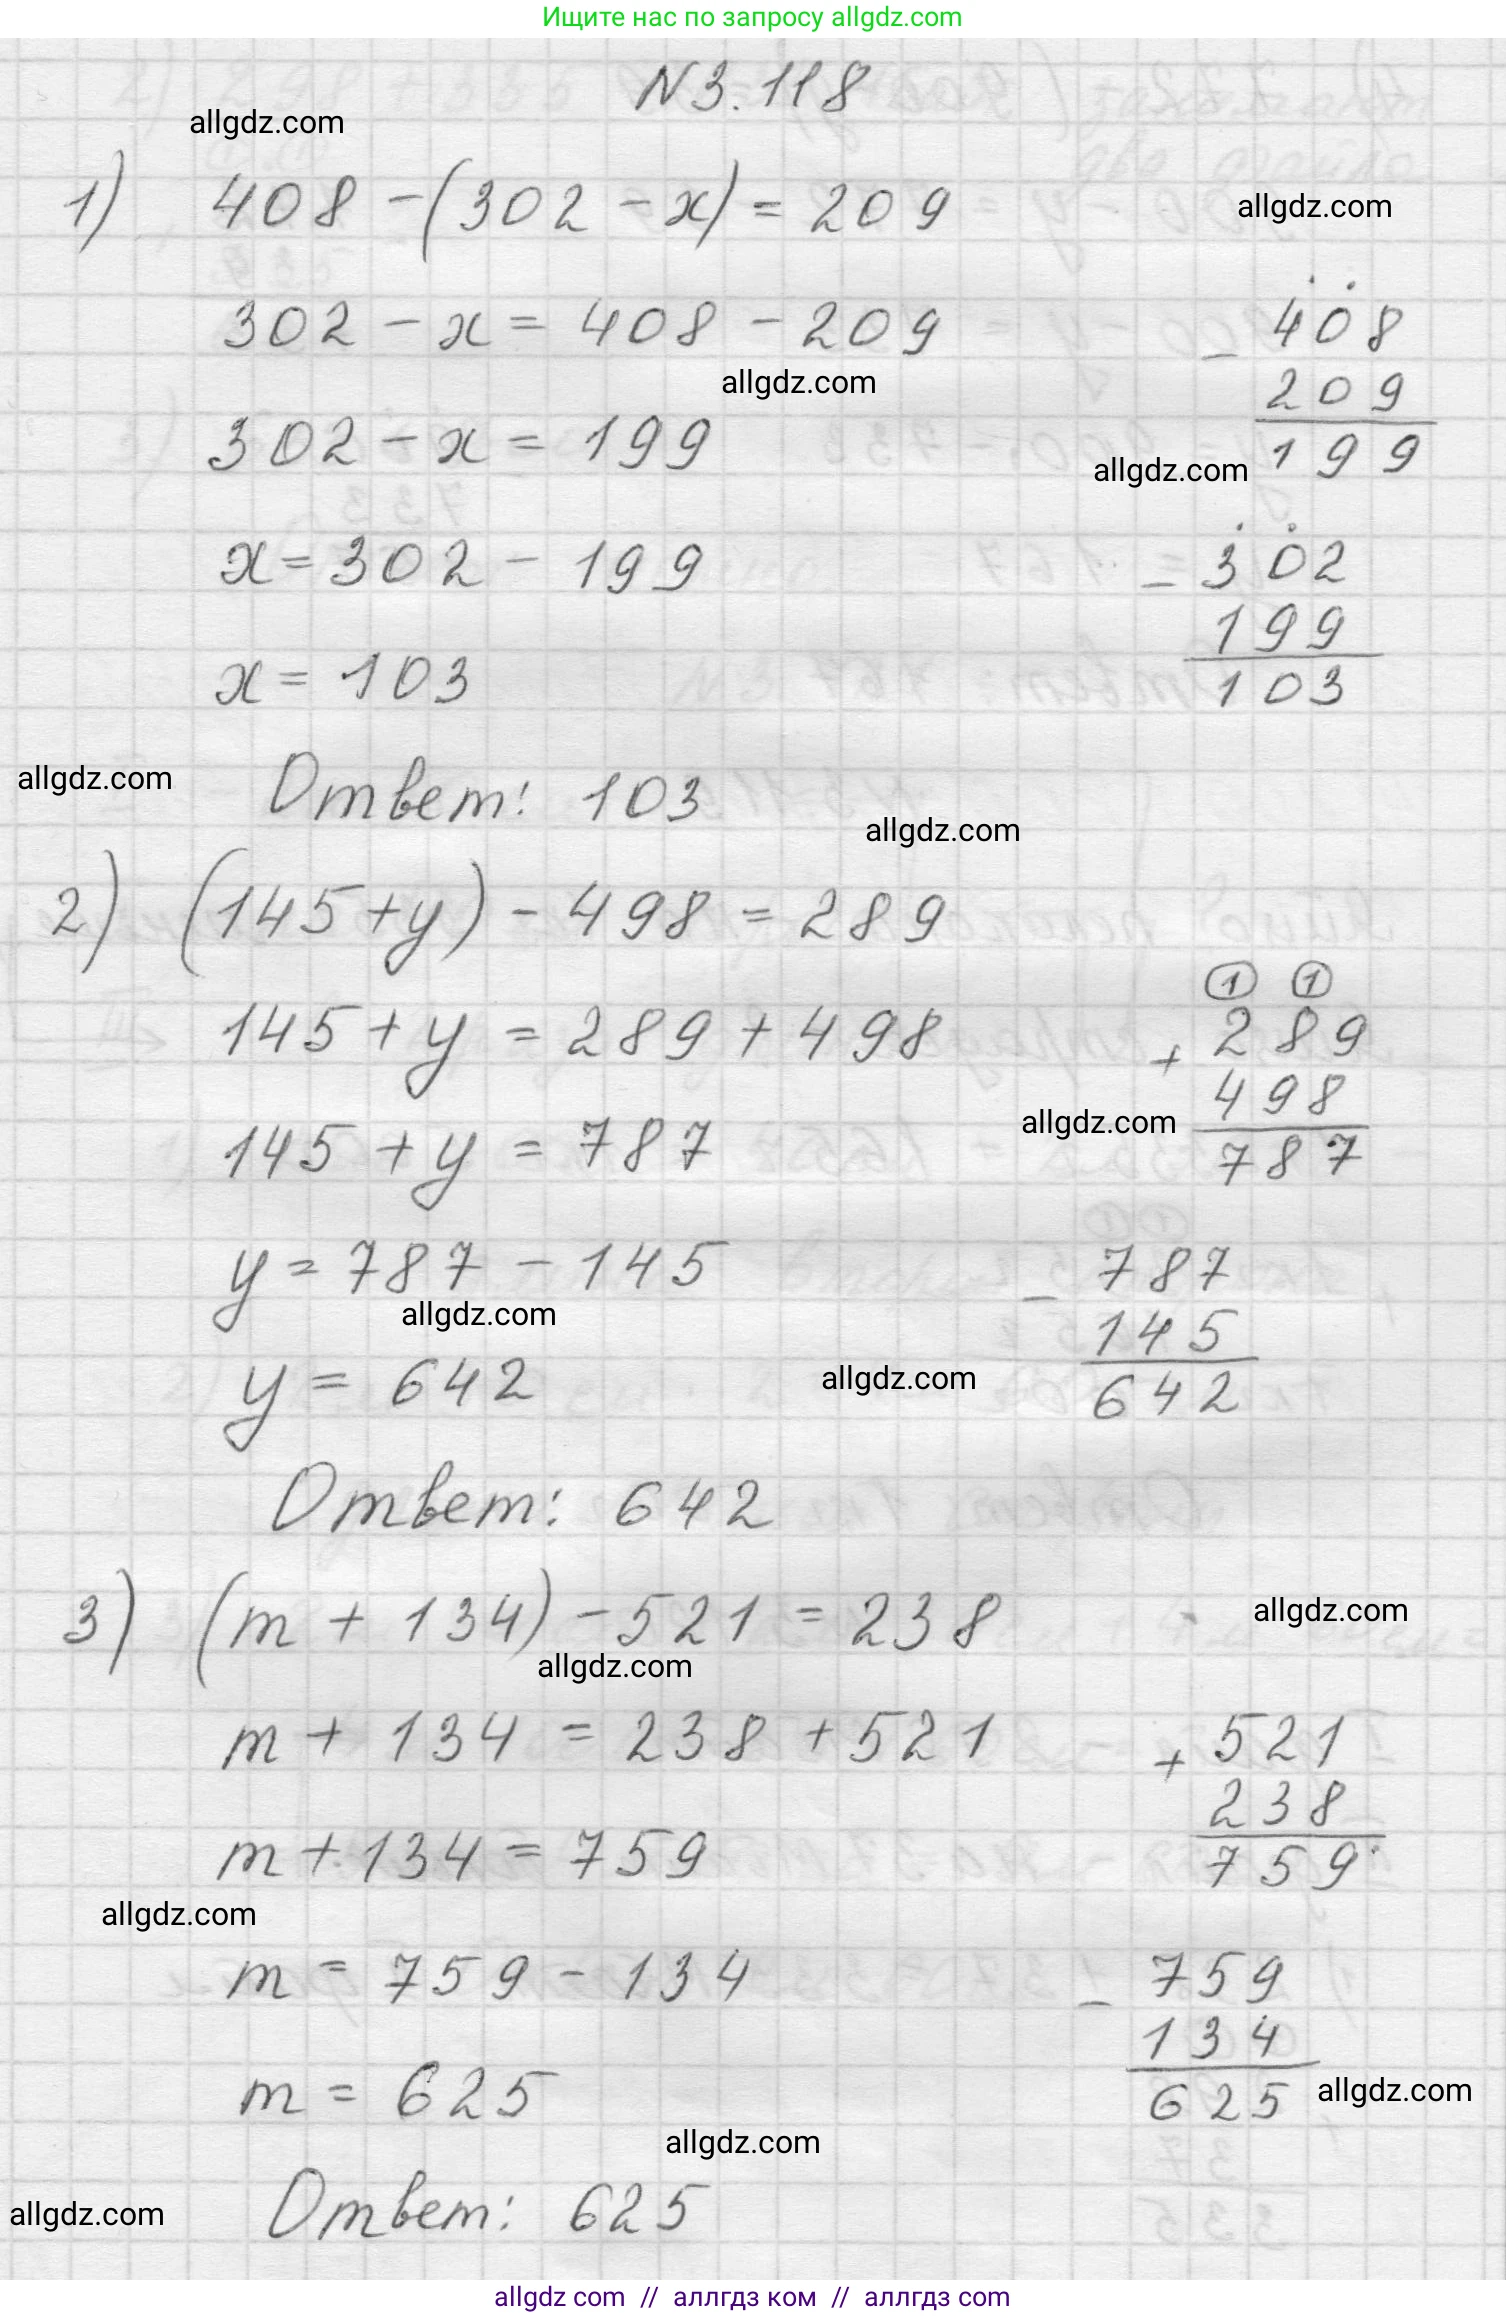 Ищите нас по запросу allgdz.com
N3.118
allgdz.com
1) 408 - (302 - x) = 209
allgdz.com
302 - x = 408 - 209
- 408
allgdz.com
209
302 - x = 199
allgdz.com
199
x = 302 - 199
- 302
199
x = 103
103
allgdz.com
Ответ: 103
allgdz.com
2) (145 + y) - 498 = 289
1 1
145 + y = 289 + 498
+ 289
498
allgdz.com
145 + y = 787
787
y = 787 - 145
- 787
allgdz.com
145
y = 642
allgdz.com
642
Ответ: 642
3) (m + 134) - 521 = 238
allgdz.com
allgdz.com
m + 134 = 238 + 521
+ 521
238
m + 134 = 759
759
allgdz.com
m = 759 - 134
- 759
134
m = 625
625
allgdz.com
allgdz.com
Ответ: 625
allgdz.com
allgdz com // аллгдз ком // аллгдз com